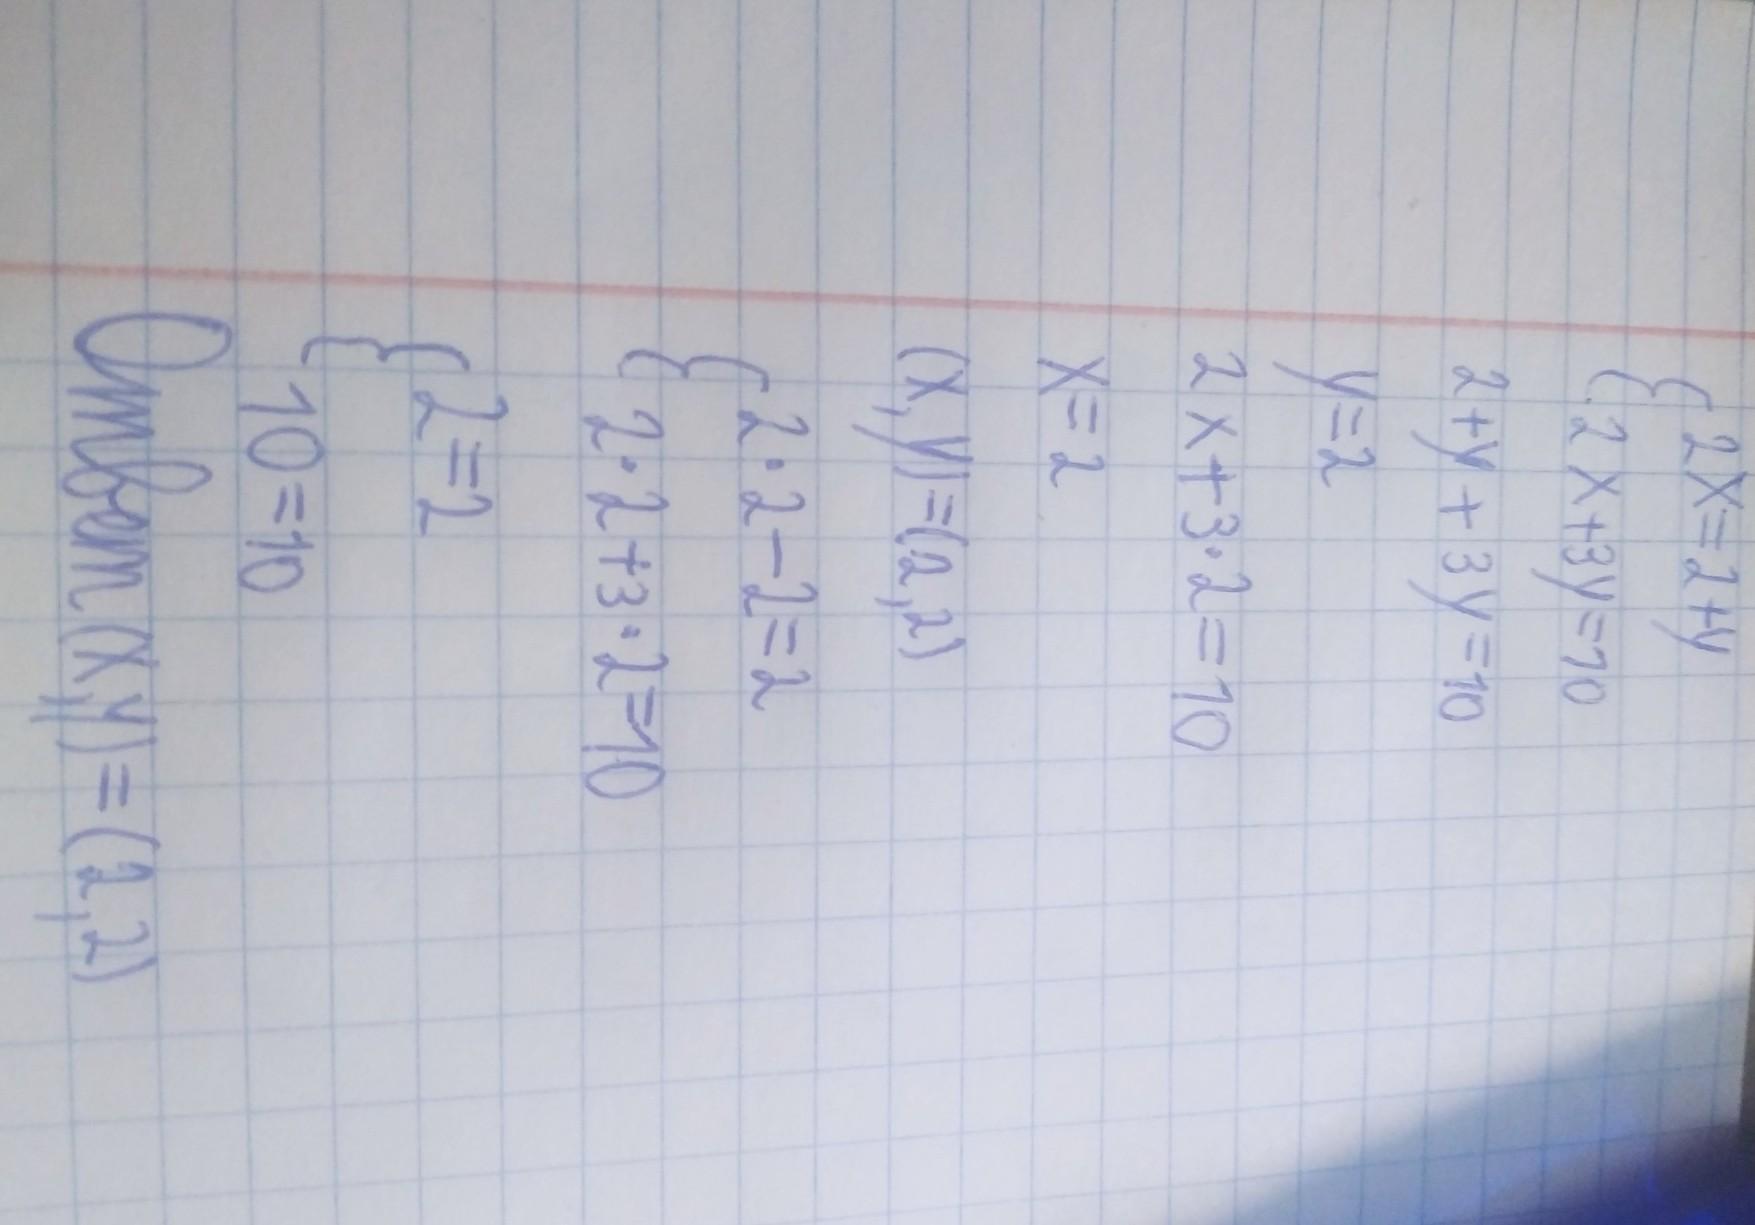 { 2x=2+y
{ 2x+3y=10
2+y+3y=10
y=2
2x+3·2=10
x=2
(x,y)=(2,2)
{ 2·2-2=2
{ 2·2+3·2=10
{ 2=2
{ 10=10
Ответ (x,y)=(2,2)